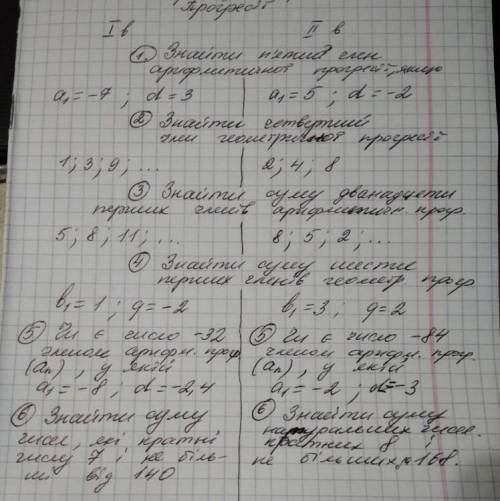 Прогресії
I в II в
① Знайти п'ятий член
арифметичної прогресії, якщо
a₁ = -7 ; d = 3 a₁ = 5 ; d = -2
② Знайти четвертий
член геометричної прогресії
1 ; 3 ; 9 ; ... 2 ; 4 ; 8
③ Знайти суму дванадцяти
перших членів арифметичн. прогр.
5 ; 8 ; 11 ; ... 8 ; 5 ; 2 ; ...
④ Знайти суму шести
перших членів геометр. прогр
b₁ = 1 ; q = -2 b₁ = 3, q = 2
⑤ Чи є число -32
членом арифм. прогр
(aₙ), у якій
a₁ = -8 ; d = -2,4
⑥ Знайти суму
чисел, які кратні
числу 7 і не біль-
ші від 140
⑤ Чи є число -84
членом арифм. прогр.
(aₙ), у якій
a₁ = -2 ; d = -3
⑥ Знайти суму
натуральних чисел
кратних 8 і
не більших 168.